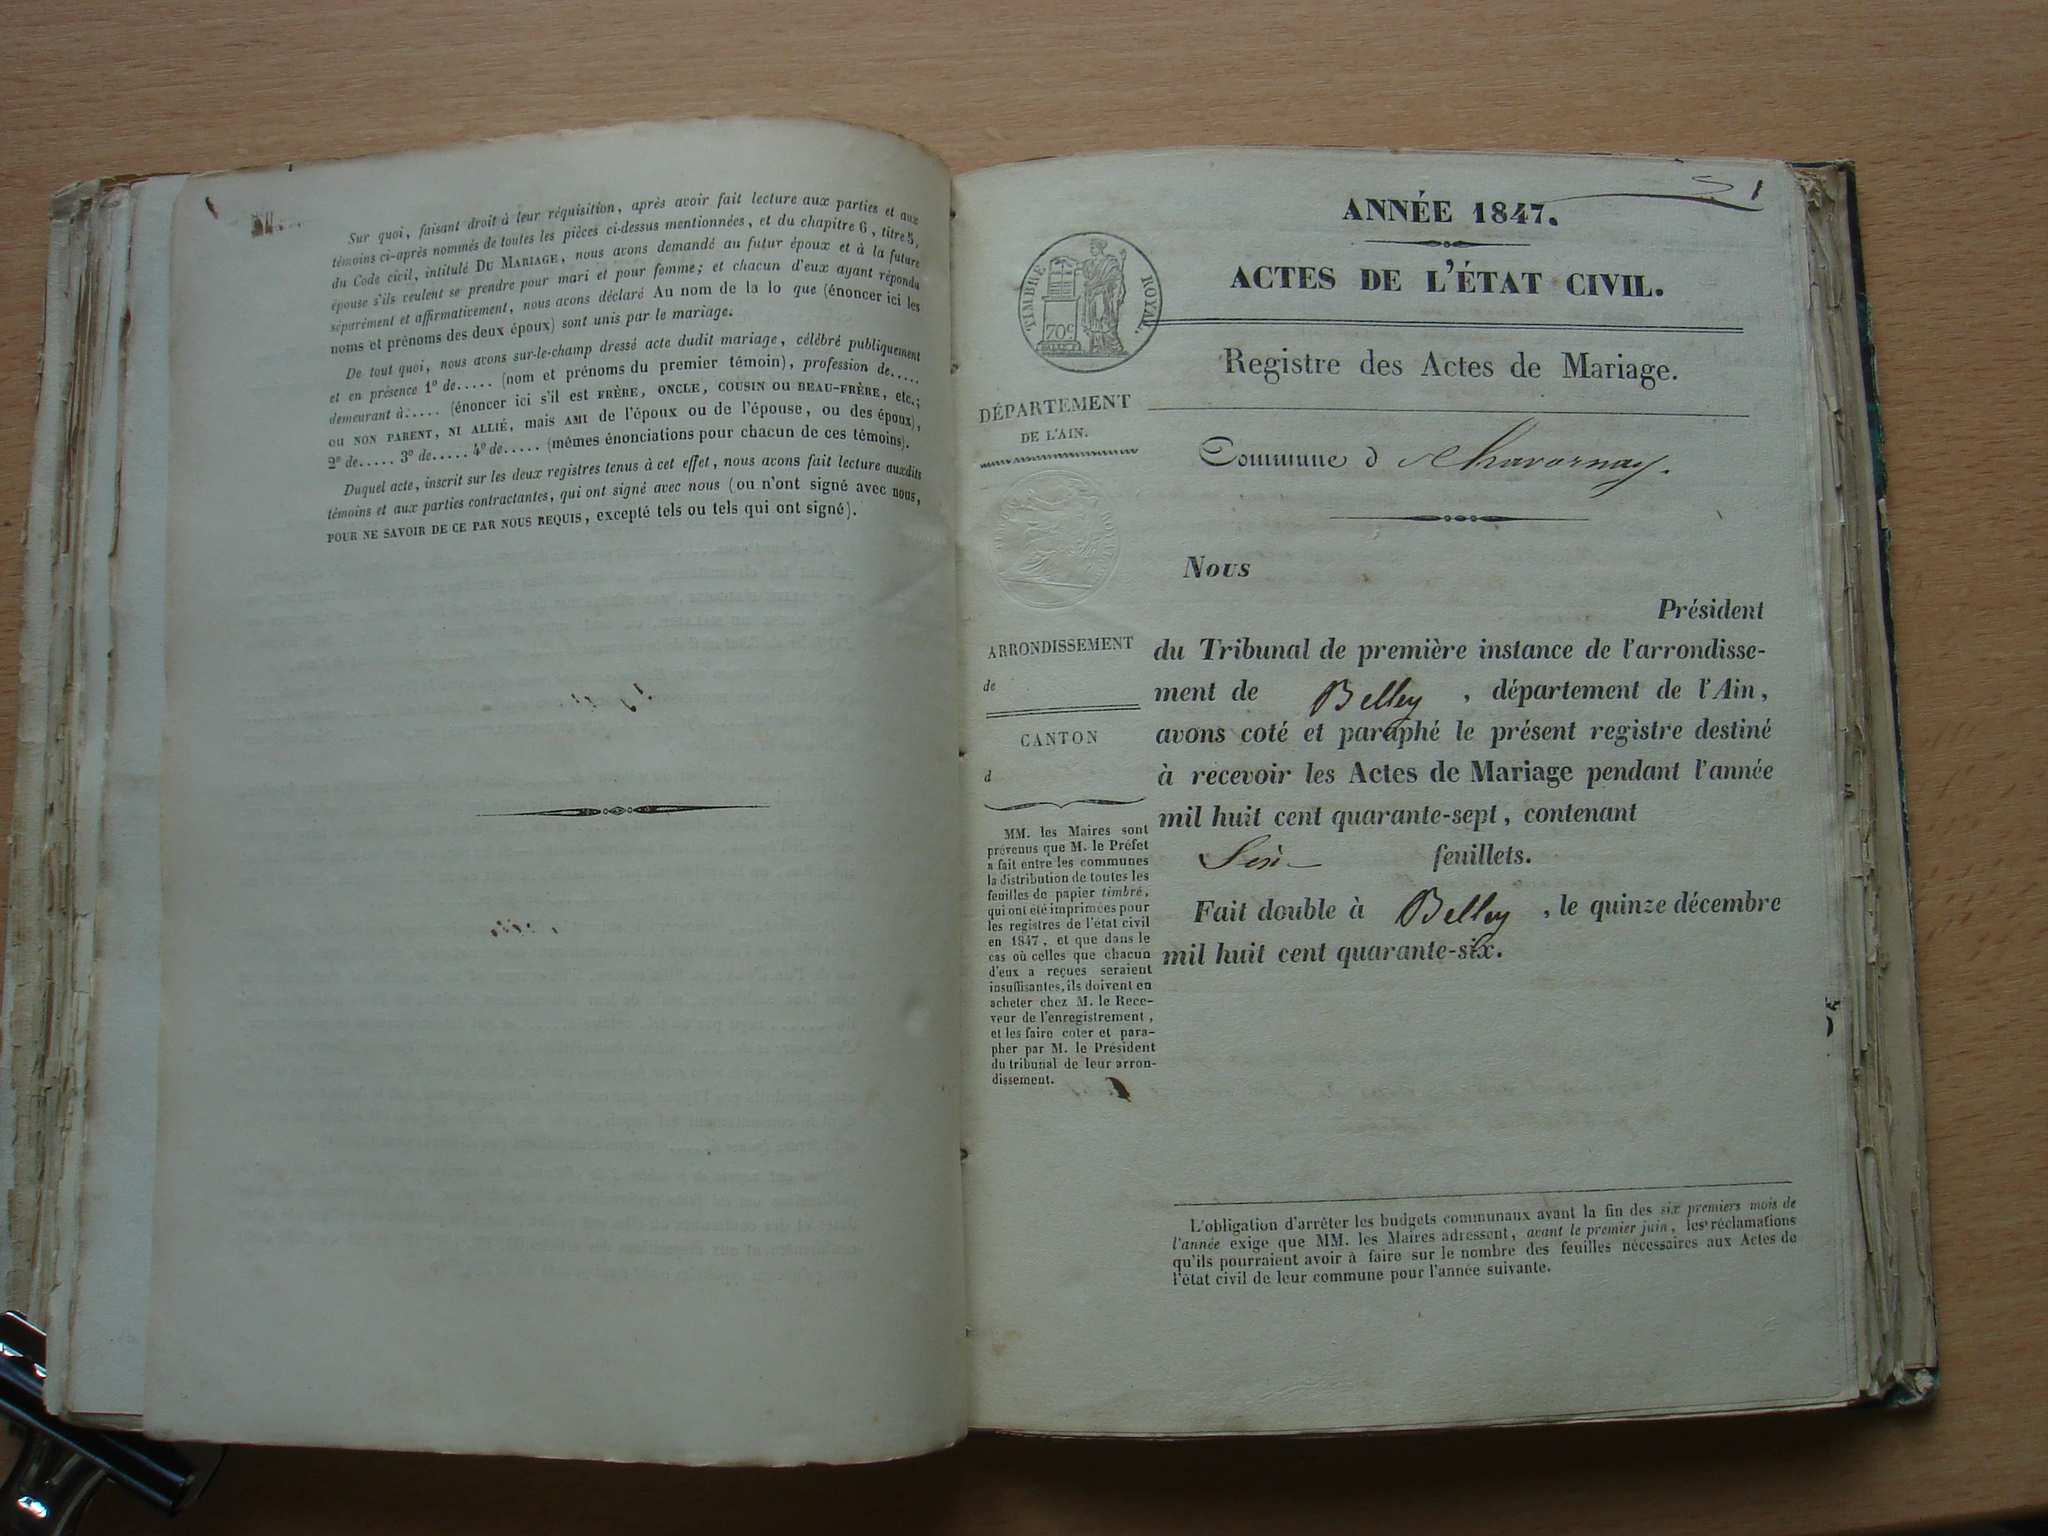 Sur quoi, faisant droit à leur réquisition, après avoir fait lecture aux parties et aux
témoins ci-après nommés de toutes les pièces ci-dessus mentionnées, et du chapitre 6, titre 5,
du Code civil, intitulé DU MARIAGE, nous avons demandé au futur époux et à la future
épouse s'ils veulent se prendre pour mari et pour femme; et chacun d'eux ayant répondu
séparément et affirmativement, nous avons déclaré Au nom de la lo que (énoncer ici les
noms et prénoms des deux époux) sont unis par le mariage.
De tout quoi, nous avons sur-le-champ dressé acte dudit mariage, célébré publiquement
et en présence 1º de..... (nom et prénoms du premier témoin), profession de.....
demeurant à..... (énoncer ici s'il est FRÈRE, ONCLE, COUSIN OU BEAU-FRÈRE, etc.;
ou NON PARENT, NI ALLIÉ, mais AMI de l'époux ou de l'épouse, ou des époux),
2º de..... 3º de..... 4º de..... (mêmes énonciations pour chacun de ces témoins).
Duquel acte, inscrit sur les deux registres tenus à cet effet, nous avons fait lecture auxdits
témoins et aux parties contractantes, qui ont signé avec nous (ou n'ont signé avec nous,
POUR NE SAVOIR DE CE PAR NOUS REQUIS, excepté tels ou tels qui ont signé).
1
ANNÉE 1847.
TIMBRE ROYAL.
70c
ACTES DE L'ÉTAT CIVIL.
Registre des Actes de Mariage.
DÉPARTEMENT
DE L'AIN.
Commune d Chavornay.
Nous
Président
du Tribunal de première instance de l'arrondisse-
ment de Belley, département de l'Ain,
avons coté et paraphé le présent registre destiné
à recevoir les Actes de Mariage pendant l'année
mil huit cent quarante-sept, contenant
Six feuillets.
Fait double à Belley, le quinze décembre
mil huit cent quarante-six.
ARRONDISSEMENT
de
CANTON
d
MM. les Maires sont
prévenus que M. le Préfet
a fait entre les communes
la distribution de toutes les
feuilles de papier timbré,
qui ont été imprimées pour
les registres de l'état civil
en 1847, et que dans le
cas où celles que chacun
d'eux a reçues seraient
insuffisantes, ils doivent en
acheter chez M. le Rece-
veur de l'enregistrement,
et les faire coter et para-
pher par M. le Président
du tribunal de leur arron-
dissement.
L'obligation d'arrêter les budgets communaux avant la fin des six premiers mois de
l'année exige que MM. les Maires adressent, avant le premier juin, les réclamations
qu'ils pourraient avoir à faire sur le nombre des feuilles nécessaires aux Actes de
l'état civil de leur commune pour l'année suivante.